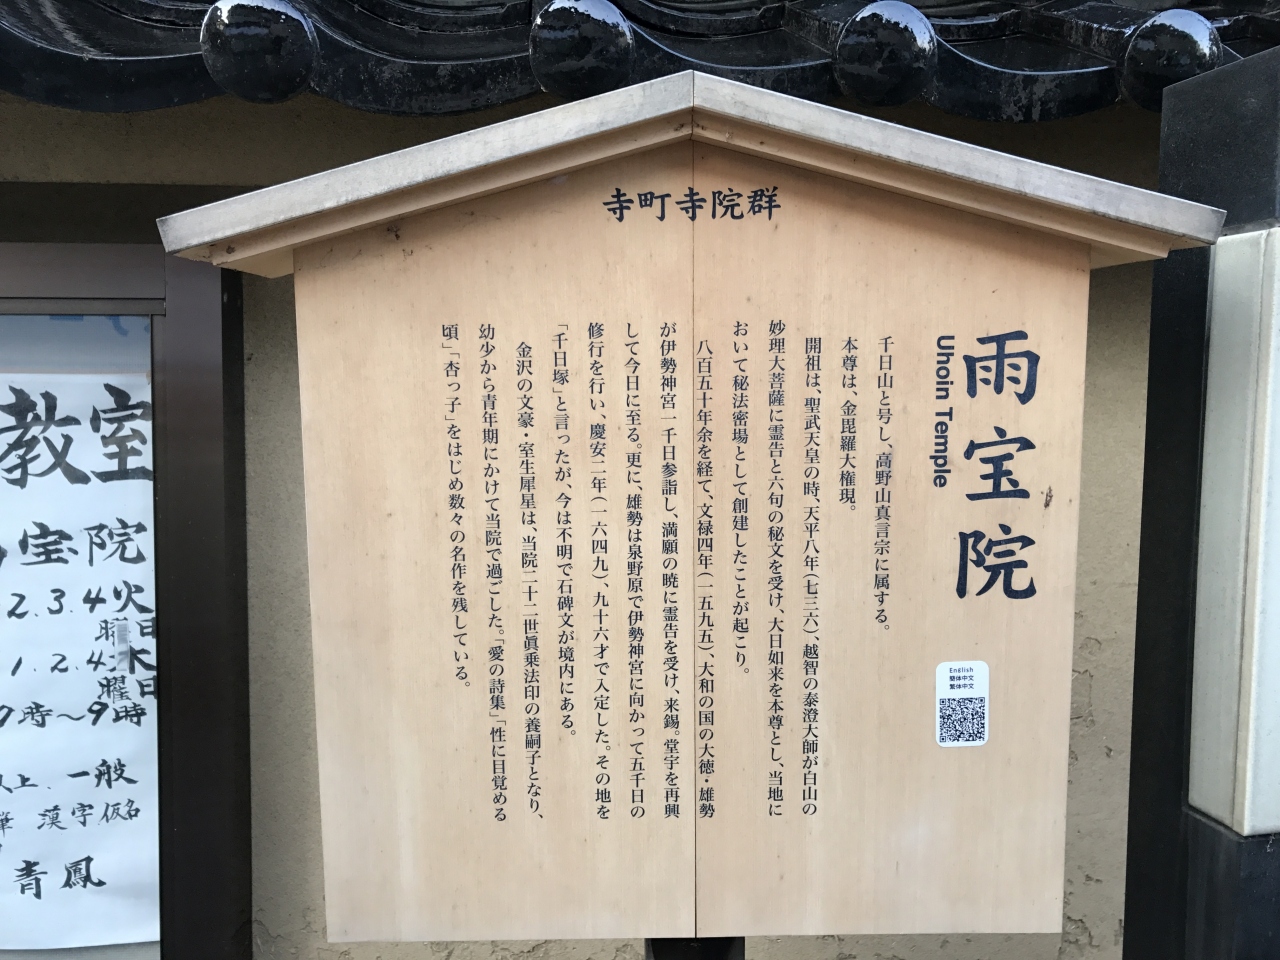 寺町寺院群
雨宝院
Uhoin Temple
千日山と号し、高野山真言宗に属する。
本尊は、金毘羅大権現。
開祖は、聖武天皇の時、天平八年(七三六)、越智の泰澄大師が白山の
妙理大菩薩に霊告と六句の秘文を受け、大日如来を本尊とし、当地に
おいて秘法密場として創建したことが起こり。
八百五十年余を経て、文禄四年(一五九五)、大和の国の大徳・雄勢
が伊勢神宮一千日参詣し、満願の暁に霊告を受け、来錫。堂宇を再興
して今日に至る。更に、雄勢は泉野原で伊勢神宮に向かって五千日の
修行を行い、慶安二年(一六四九)、九十六才で入定した。その地を
「千日塚」と言ったが、今は不明で石碑文が境内にある。
金沢の文豪・室生犀星は、当院二十二世眞乗法印の養嗣子となり、
幼少から青年期にかけて当院で過ごした。「愛の詩集」「性に目覚める
頃」「杏っ子」をはじめ数々の名作を残している。
English
簡体中文
繁体中文
教室
宝院
2.3.4火
曜日
1.2.4木
曜日
7時〜9時
以上.一般
漢字仮名
青鳳